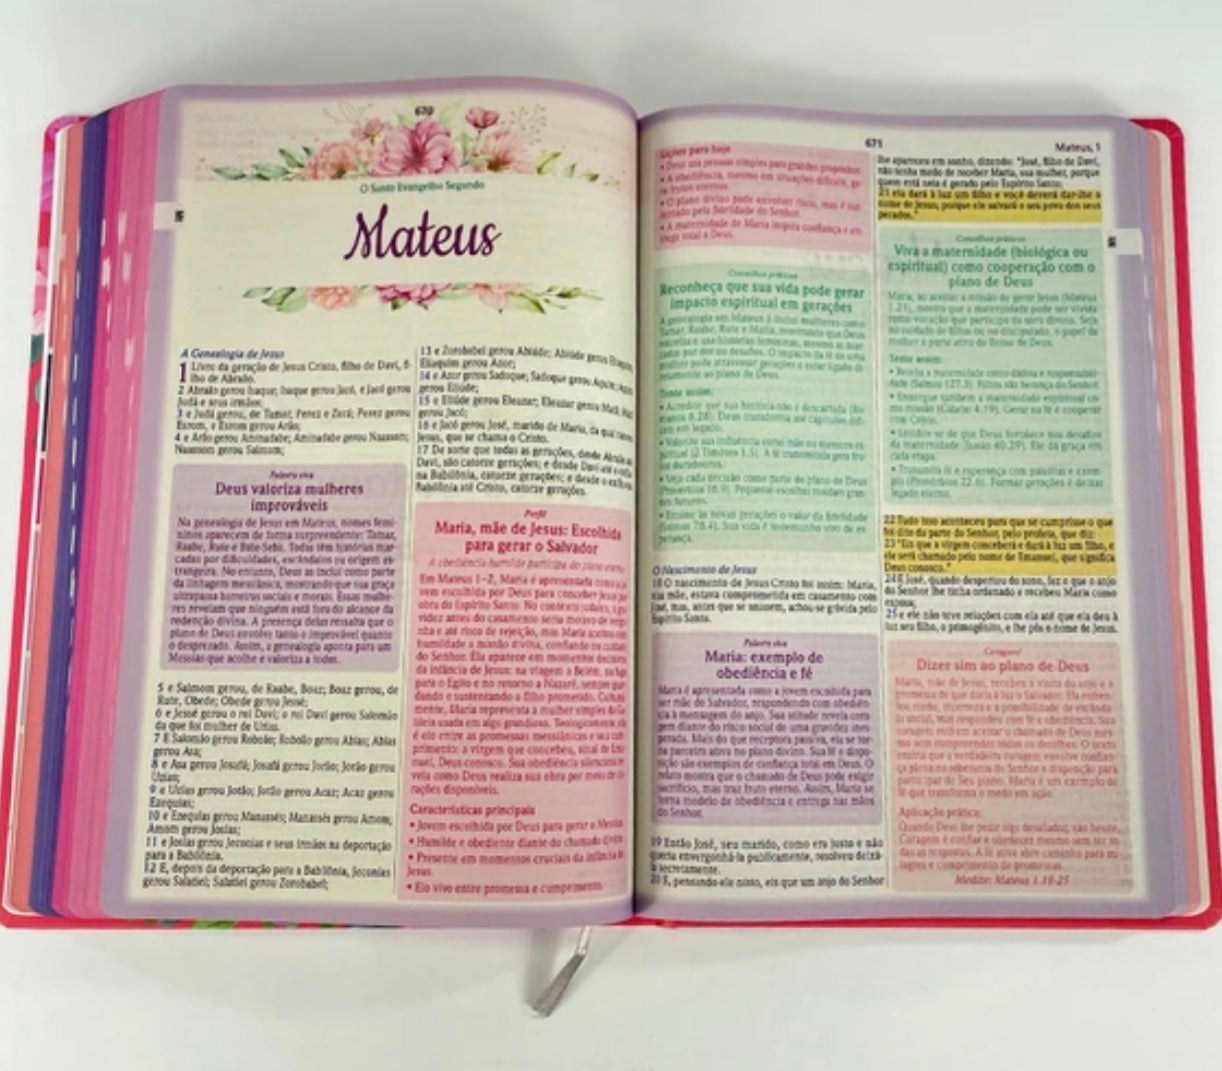 670
O Santo Evangelho Segundo
Mateus
A Genealogia de Jesus
1 Livro da geração de Jesus Cristo, filho de Davi, fi-
lho de Abraão.
2 Abraão gerou Isaque; Isaque gerou Jacó, e Jacó gerou
Judá e seus irmãos;
3 e Judá gerou, de Tamar, Perez e Zerá; Perez gerou
Esrom, e Esrom gerou Arão;
4 e Arão gerou Aminadabe; Aminadabe gerou Naassom;
Naassom gerou Salmom;
Palavra viva
Deus valoriza mulheres
improváveis
Na genealogia de Jesus em Mateus, nomes femi-
ninos aparecem de forma surpreendente: Tamar,
Raabe, Rute e Bate-Seba. Todas têm histórias mar-
cadas por dificuldades, escândalos ou origem es-
trangeira. No entanto, Deus as inclui como parte
da linhagem messiânica, mostrando que sua graça
ultrapassa barreiras sociais e morais. Essas mulhe-
res revelam que ninguém está fora do alcance da
redenção divina. A presença delas ressalta que o
plano de Deus envolve tanto o improvável quanto
o desprezado. Assim, a genealogia aponta para um
Messias que acolhe e valoriza a todos.
5 e Salmom gerou, de Raabe, Boaz; Boaz gerou, de
Rute, Obede; Obede gerou Jessé;
6 e Jessé gerou o rei Davi; o rei Davi gerou Salomão
da que foi mulher de Urias.
7 E Salomão gerou Roboão; Roboão gerou Abias; Abias
gerou Asa;
8 e Asa gerou Josafá; Josafá gerou Jorão; Jorão gerou
Uzias;
9 e Uzias gerou Jotão; Jotão gerou Acaz; Acaz gerou
Ezequias;
10 e Ezequias gerou Manassés; Manassés gerou Amom;
Amom gerou Josias;
11 e Josias gerou Jeconias e seus irmãos na deportação
para a Babilônia.
12 E, depois da deportação para a Babilônia, Jeconias
gerou Salatiel; Salatiel gerou Zorobabel;
13 e Zorobabel gerou Abiúde; Abiúde gerou Eliaquim;
Eliaquim gerou Azor;
14 e Azor gerou Sadoque; Sadoque gerou Aquim; Aquim
gerou Eliúde;
15 e Eliúde gerou Eleazar; Eleazar gerou Matã, Matã
gerou Jacó;
16 e Jacó gerou José, marido de Maria, da qual nasceu
Jesus, que se chama o Cristo.
17 De sorte que todas as gerações, desde Abraão até
Davi, são catorze gerações; e desde Davi até o exílio
na Babilônia, catorze gerações; e desde o exílio na
Babilônia até Cristo, catorze gerações.
Perfil
Maria, mãe de Jesus: Escolhida
para gerar o Salvador
A obediência humilde participa do plano eterno
Em Mateus 1–2, Maria é apresentada como a jo-
vem escolhida por Deus para conceber Jesus por
obra do Espírito Santo. No contexto judaico, a gra-
videz antes do casamento seria motivo de vergo-
nha e até risco de rejeição, mas Maria aceitou com
humildade a missão divina, confiando no cuidado
do Senhor. Ela aparece em momentos decisivos
da infância de Jesus: na viagem a Belém, na fuga
para o Egito e no retorno a Nazaré, sempre guar-
dando e sustentando o filho prometido.
Maria representa a mulher simples da Ga-
lileia usada em algo grandioso. Teologicamente, ela
é elo entre as promessas messiânicas e sua cum-
primento: a virgem que concebeu, sinal de Ema-
nuel, Deus conosco. Sua obediência silenciosa re-
vela como Deus realiza sua obra por meio de co-
rações disponíveis.
Características principais
• Jovem escolhida por Deus para gerar o Messias
• Humilde e obediente diante do chamado divino.
• Presente em momentos cruciais da infância de
Jesus.
• Elo vivo entre promessa e cumprimento.
671
Mateus, 1
Lições para hoje
• Deus usa pessoas simples para grandes propósitos.
• A obediência, mesmo em situações difíceis, ge-
ra frutos eternos.
• O plano divino pode envolver risco, mas é sus-
tentado pela fidelidade do Senhor.
• A maternidade de Maria inspira confiança e en-
trega total a Deus.
Conselhos práticos
Reconheça que sua vida pode gerar
impacto espiritual em gerações
A genealogia em Mateus 1 inclui mulheres como
Tamar, Raabe, Rute e Maria, mostrando que Deus
valoriza e usa histórias femininas, mesmo as mar-
cadas por dor ou desafios. O impacto da fé de uma
mulher pode atravessar gerações e estar ligado di-
retamente ao plano de Deus.
Tente assim:
• Acredite que sua história não é descartada (Ro-
manos 8.28). Deus transforma até capítulos difí-
ceis em legado.
• Valorize sua influência como mãe ou mentora es-
piritual (2 Timóteo 1.5). A fé transmitida gera fru-
tos duradouros.
• Veja cada decisão como parte do plano de Deus
(Provérbios 16.9). Pequenas escolhas moldam gran-
des futuros.
• Ensine às novas gerações o valor da fidelidade
(Salmos 78.4). Sua vida é testemunho vivo de es-
perança.
O Nascimento de Jesus
18 O nascimento de Jesus Cristo foi assim: Maria,
sua mãe, estava comprometida em casamento com
José, mas, antes que se unissem, achou-se grávida pelo
Espírito Santo.
Palavra viva
Maria: exemplo de
obediência e fé
Maria é apresentada como a jovem escolhida para
ser mãe do Salvador, respondendo com obediên-
cia à mensagem do anjo. Sua atitude revela cora-
gem diante do risco social de uma gravidez ines-
perada. Mais do que receptora passiva, ela se tor-
na parceira ativa no plano divino. Sua fé e dispo-
sição são exemplos de confiança total em Deus. O
relato mostra que o chamado de Deus pode exigir
sacrifício, mas traz fruto eterno. Assim, Maria se
torna modelo de obediência e entrega nas mãos
do Senhor.
19 Então José, seu marido, como era justo e não
queria envergonhá-la publicamente, resolveu deixá-
la secretamente.
20 E, pensando ele nisto, eis que um anjo do Senhor
lhe apareceu em sonho, dizendo: "José, filho de Davi,
não tenha medo de receber Maria, sua mulher, porque
quem está nela é gerado pelo Espírito Santo;
21 ela dará à luz um filho e você deverá dar-lhe o
nome de Jesus; porque ele salvará o seu povo dos seus
pecados."
Conselhos práticos
Viva a maternidade (biológica ou
espiritual) como cooperação com o
plano de Deus
Maria, ao aceitar a missão de gerar Jesus (Mateus
1.21), mostra que a maternidade pode ser vivida
como vocação que participa da obra divina. Seja
no cuidado de filhos ou no discipulado, o papel da
mulher é parte ativa do Reino de Deus.
Tente assim:
• Receba a maternidade como dádiva e responsabili-
dade (Salmo 127.3). Filhos são herança do Senhor.
• Enxergue também a maternidade espiritual co-
mo missão (Gálatas 4.19). Gerar na fé é cooperar
com Cristo.
• Lembre-se de que Deus fortalece nos desafios
da maternidade (Isaías 40.29). Ele dá graça em
cada etapa.
• Transmita fé e esperança com palavras e exem-
plo (Provérbios 22.6). Formar gerações é deixar
legado eterno.
22 Tudo isso aconteceu para que se cumprisse o que
foi dito da parte do Senhor, pelo profeta, que diz:
23 "Eis que a virgem conceberá e dará à luz um filho, e
ele será chamado pelo nome de Emanuel, que significa
Deus conosco."
24 E José, quando despertou do sono, fez o que o anjo
do Senhor lhe tinha ordenado e recebeu Maria como
esposa;
25 e ele não teve relações com ela até que ela deu à
luz seu filho, o primogênito, e lhe pôs o nome de Jesus.
Coragem!
Dizer sim ao plano de Deus
Maria, mãe de Jesus, recebeu a visita do anjo e a
promessa de que daria à luz o Salvador. Ela enfren-
tou medo, incerteza e a possibilidade de escânda-
lo social, mas respondeu com fé e obediência. Sua
coragem está em aceitar o chamado de Deus mes-
mo sem compreender todos os detalhes. O texto
ensina que a verdadeira coragem envolve confian-
ça plena na soberania do Senhor e disposição para
participar de Seu plano. Maria é um exemplo de
fé que transforma o medo em ação.
Aplicação prática:
Quando Deus lhe pedir algo desafiador, não hesite.
Coragem é confiar e obedecer mesmo sem ter to-
das as respostas. A fé ativa abre caminho para mi-
lagres e cumprimento de promessas.
Meditar: Mateus 1.18-25